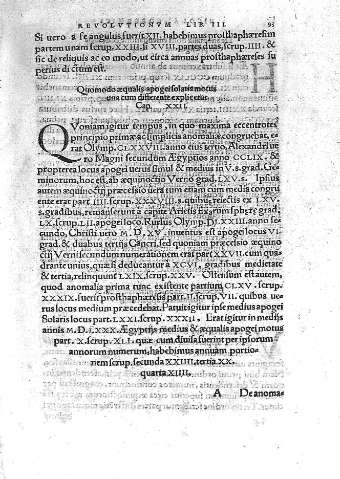 REVOLVTIONVM LIB. III. 93
Si uero 8 f e angulus fuerit LXII. habebimus prosthaphæresim
partem unam scrup. XXIII. si XVIII. partes duas, scrup. IIII. &
sic de reliquis ac eo modo, ut circa annuas prosthaphæreses su
perius dictum est.
Quomodo æqualis apogei solaris motus
una cum differente explicetur
Cap. XXII.
QVoniam igitur tempus, in quo maxima eccentrotes
principio primæ ac simplicis anomaliæ congruebat, e
rat Olymp. CLXXVIII. anno eius tertio, Alexandri ue
ro Magni secundum Ægyptios anno CCLIX. &
propterea locus apogei uerus simul & medius in V. s. grad. Ge
minorum, hoc est, ab æquinoctio Verno grad. LXV. s. Ipsius
autem æquinoctij præcessio uera tum etiam cum media congru
ente erat part. IIII. scrup. XXXVIII. s. quibus reiectis ex LXV.
s. gradibus, remanserunt à capite Arietis fixarum sphæræ grad.
LX. scrup. LII. apogei loco. Rursus Olymp. D. LXXIII. anno se
cundo, Christi uero M. D. XV. inuentus est apogei locus VI.
grad. & duabus tertijs Cancri, sed quoniam præcessio æquino
ctij Verni secundum numerationem erat part. XXVII. cum qua
drante unius, quæ si deducantur à XCVI. gradibus medietate
& tertia, relinquunt LXIX. scrup. XXV. Ostensum est autem,
quod anomalia prima tunc existente partium CLXV. scrup.
XXXIX. fuerit prosthaphæresis part. II. scrup. VII. quibus ue
rus locus medium præcedebat. Patuit igitur ipse medius apogei
Solaris locus part. LXXI. scrup. XXXII. Erat igitur in medijs
annis M. D. LXXX. Ægyptijs medius & æqualis apogei motus
part. X. scrup. XLI. quæ cum diuisa fuerint per ipsorum
annorum numerum, habebimus annuam portio-
nem scrup. secunda XXIIII, tertia XX.
quarta XIIII.
A De anoma-